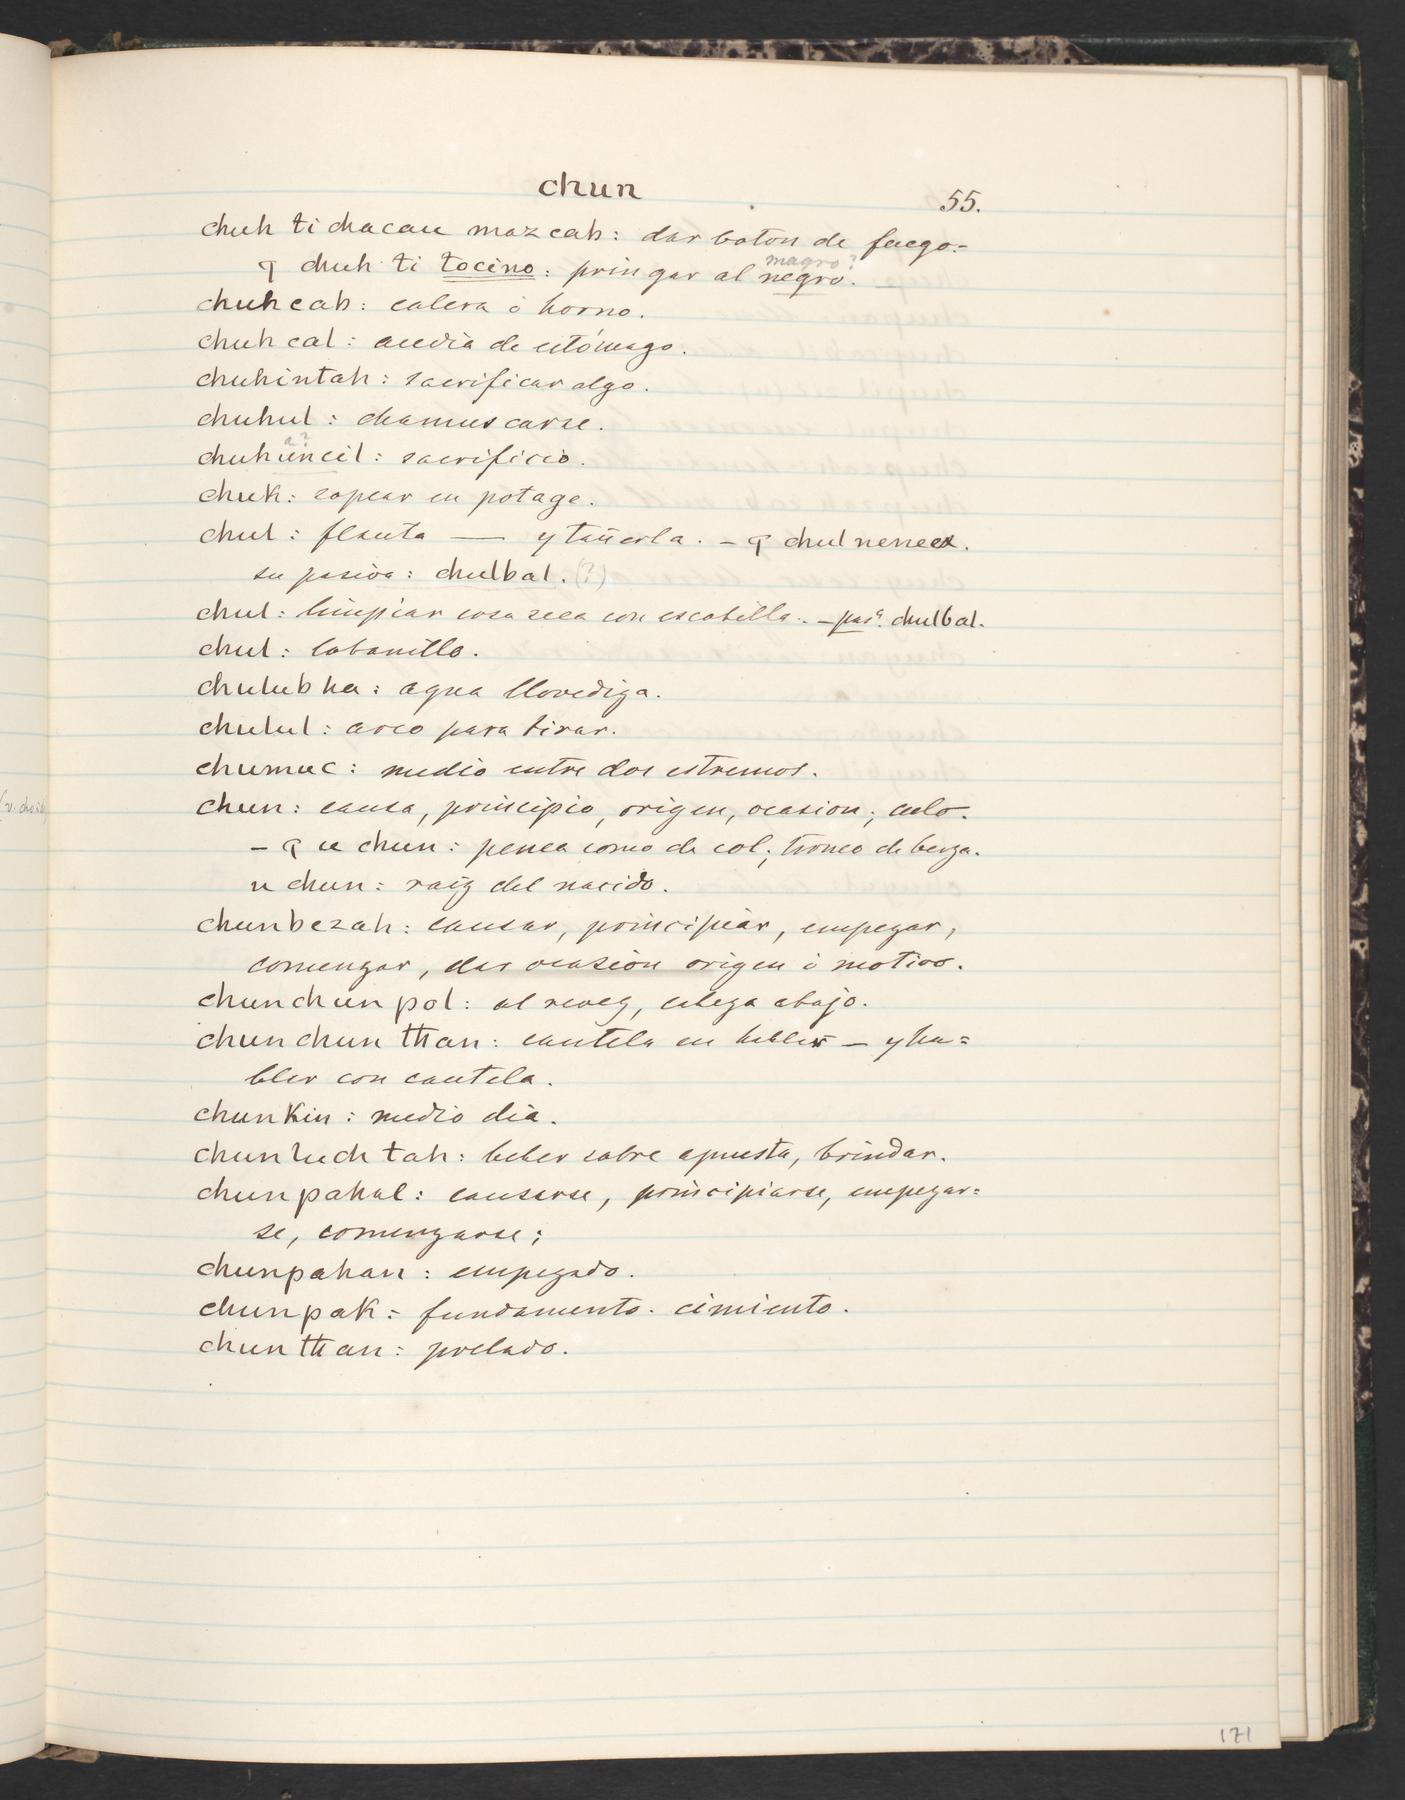 chun
55.
chuh ti chacau mazcab: dar boton de fuego.-
magro?
ꟼ chuh ti tocino: pringar al negro.
chuhcab: calera ó horno.
chuh cal: acedia de estómago.
chuhintah: sacrificar algo.
chuhul: chamuscarse.
a?
chuhuncil: sacrificio.
chuk: sopear en potage.
chul: flauta — y tañerla. - ꟼ chul neneex.
su pasiva: chulbal. (?)
chul: limpiar cosa seca con escobilla. - pasª. chulbal.
chul: lobanillo.
chulub ha: agua llovediza.
chulul: arco para tirar.
chumuc: medio entre dos estremos.
chun: causa, principio, origen, ocasion; culo.
- ꟼ u chun: penca como de col; tronco de berza.
u chun: raiz del nacido.
chunbezah: causar, principiar, empezar,
comenzar, dar ocasion origen ó motivo.
chunchun pol: al revez, cabeza abajo.
chun chun than: cautela en hablar — y ha=
blar con cautela.
chunkin: medio dia.
chunluch tah: beber sobre apuesta, brindar.
chunpahal: causarse, principiarse, empezar=
se, comenzarse;
chunpahan: empezado.
chunpak: fundamento. cimiento.
chun than: prelado.
171